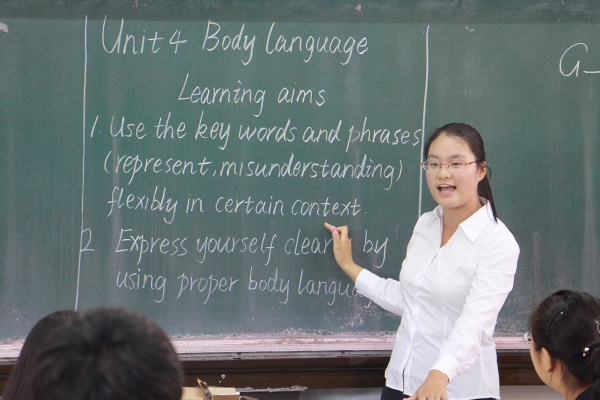 Unit 4 Body language
Learning aims
1. Use the key words and phrases
(represent, misunderstanding)
flexibly in certain context.
2 Express yourself clear by
using proper body langua
G